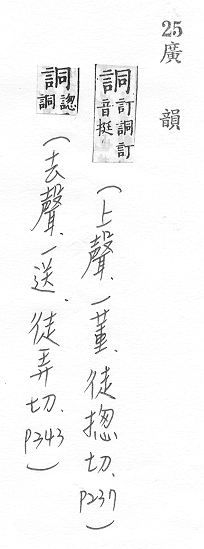 25 廣韻
詞 訂詞訂音挺(上聲.一董.徒摠切.P237)
詞 諰詞(去聲.一送.徒弄切.P343)